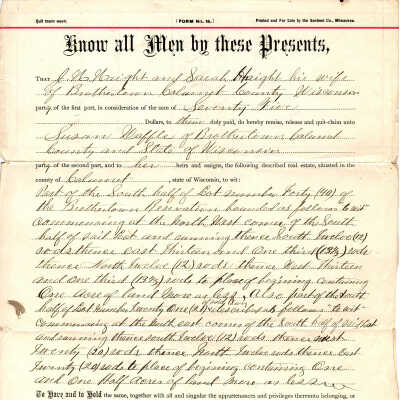 Quit claim deed.
[FORM No. 16.]
Printed and For Sale by the Sentinel Co., Milwaukee.
Know all Men by these Presents,
THAT Haight and Sarah Haight his wife
of Brothertown Calumet County Wisconsin
party of the first part, in consideration of the sum of Seventy Five
Dollars, to them duly paid, do hereby remise, release and quit-claim unto
Susan of Brothertown Calumet
County and State of Wisconsin
party of the second part, and to her heirs and assigns, the following described real estate, situated in the
county of Calumet state of Wisconsin, to wit:
Part of the South half of Lot number Forty (40) of
the Brothertown Reservation bounded as follows to wit
commencing at the North West corner of the South
half of said Lot and running thence South Twelve (12)
rods thence east Thirteen and One third (13⅓) rods
thence North Twelve (12) rods thence West Thirteen
and one third (13⅓) rods to place of beginning containing
One Acre of land more or less, Also part of the South
half of Lot number Twenty One (21) described as follows to wit
Commencing at the North east corner of the South half of said Lot
and running thence south Twelve (12) rods thence west
Twenty (20) rods thence North Twelve rods thence East
Twenty (20) rods to place of beginning containing One
and One half Acres of land more or less
To Have and to Hold the same, together with all and singular the appurtenances and privileges thereunto belonging, or